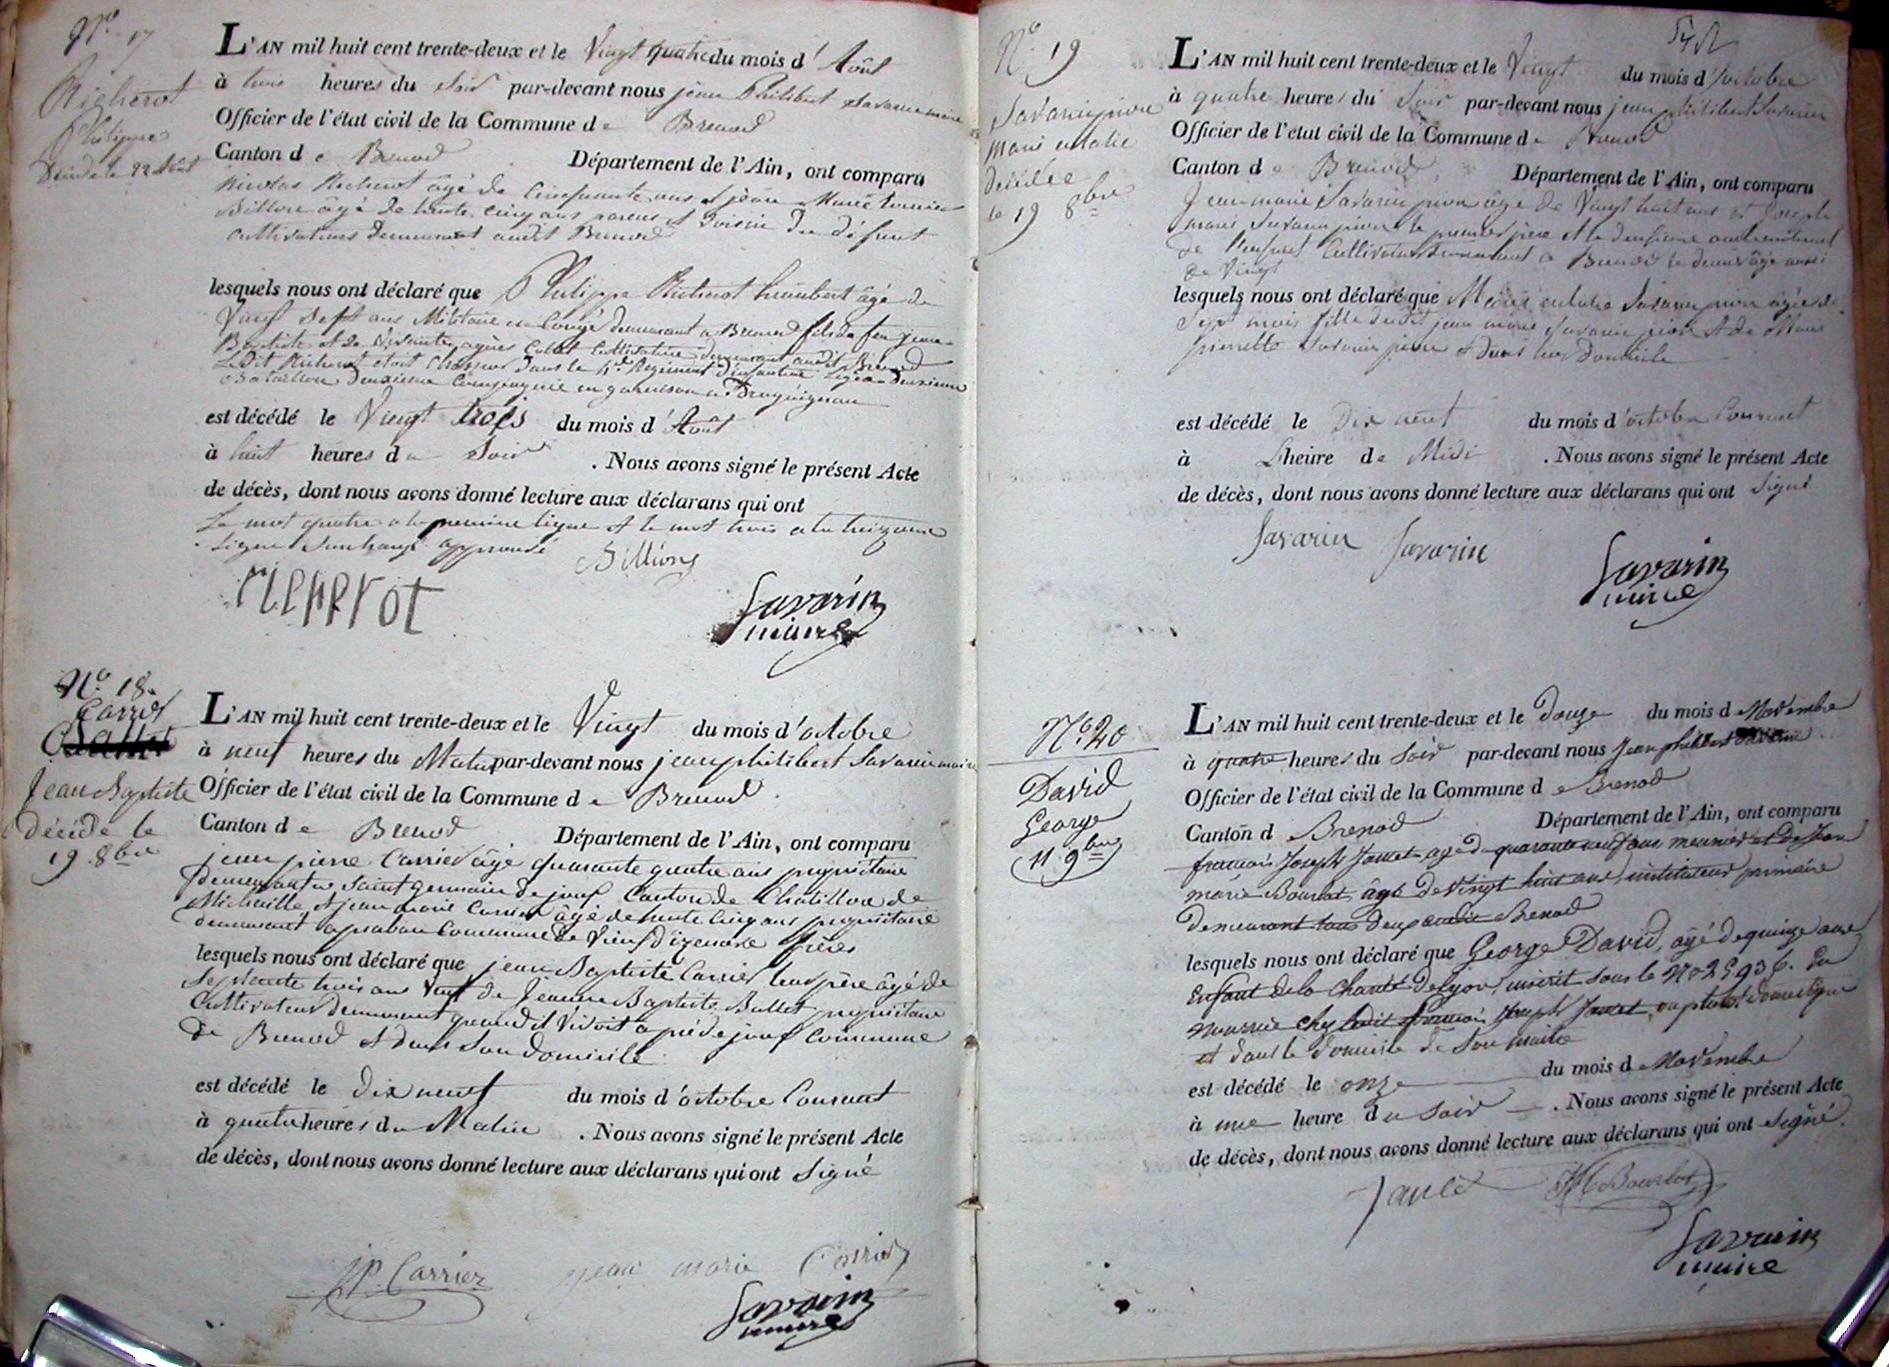 N.o 17
Richerot
Philippe
Décédé le 22 Août
L'AN mil huit cent trente-deux et le Vingt quatre du mois d'Août
à trois heures du Soir par-devant nous jean Philibert Savarin maire
Officier de l'état civil de la Commune de Brenod
Canton de Brenod Département de l'Ain, ont comparu
Nicolas Richerot âgé de Cinquante ans et jean Marie
Billion âgé de trente cinq ans parens et Voisin du défunt
cultivateurs demeurant audit Brenod
lesquels nous ont déclaré que Philippe Richerot humbert âgé de
Vingt Sept ans Militaire en Congé demeurant a Brenod fils de feu jean
Baptiste et de Collet Cultivatrice demeurant audit Brenod
Ledit Richerot etoit Chasseur Dans le Regiment d'infanterie Legère Deuxieme
Bataillon Deuxieme Compagnie en garnison a Draguignan
est décédé le Vingt trois du mois d'Août
à huit heures du Soir . Nous avons signé le présent Acte
de décès, dont nous avons donné lecture aux déclarans qui ont
Le mot quatre a la premiere ligne et le mot trois a la treizieme
Ligne Surchargé approuvé
Billion
RICHEROT
Savarin
maire
N.o 18.
Carrier
Jean Baptiste
décédé le
19 8bre
L'AN mil huit cent trente-deux et le Vingt du mois d'octobre
à neuf heures du Matin par-devant nous jean philibert Savarin maire
Officier de l'état civil de la Commune de Brenod
Canton de Brenod Département de l'Ain, ont comparu
jean pierre Carrier âgé quarante quatre ans propriétaire
demeurant a Saint germain de joux Canton de Chatillon de
Michaille et jean marie Carrier âgé de trente Cinq ans propriétaire
demeurant a Commune de Vieu d'izenave frères
lesquels nous ont déclaré que jean Baptiste Carrier leur père âgé de
Septente trois ans Veuf de Jeanne Baptiste Ballet propriétaire
Cultivateur demeurant quand il Vivoit a pré de joux Commune
de Brenod et dans Son Domicile
est décédé le Dix neuf du mois d'octobre Courant
à quatre heures du Matin . Nous avons signé le présent Acte
de décès, dont nous avons donné lecture aux déclarans qui ont Signé
JP. Carrier jean marie Carrier
Savarin
maire
N.o 19
Savarin pion
Marie eulalie
Décédée
le 19 8bre
L'AN mil huit cent trente-deux et le Vingt du mois d'octobre
à quatre heures du Soir par-devant nous jean philibert Savarin
Officier de l'état civil de la Commune de Brenod
Canton de Brenod Département de l'Ain, ont comparu
Jean marie Savarin pion âgé de Vingt huit ans et Joseph
marie Savarin pion le premier père et le deuxieme oncle maternel
de l'enfant Cultivateurs demeurant a Brenod le dernier âgé aussi
de Vingt
lesquels nous ont déclaré que Marie eulalie Savarin pion âgée de
Sept mois fille dudit jean marie Savarin pion et de Marie
pierrette Savarin pion et dans leur Domicile
est décédé le Dix neuf du mois d'octobre Courant
à L'heure de Midi . Nous avons signé le présent Acte
de décès, dont nous avons donné lecture aux déclarans qui ont Signé
Savarin Savarin
Savarin
maire
N.o 20
David
George
11 9bre
L'AN mil huit cent trente-deux et le Douze du mois de Novembre
à quatre heures du Soir par-devant nous Jean philibert Savarin
Officier de l'état civil de la Commune de Brenod
Canton de Brenod Département de l'Ain, ont comparu
francois Joseph Jantet agé de quarante neuf ans meunier et de Jean
marie Bourlot âgé de vingt huit ans, instituteur primaire
Demeurant tous deux audit Brenod
lesquels nous ont déclaré que George David, âgé de quinze ans
Enfant de la Charité de Lyon, inscrit sous le No 25936. En
nourrice chez ledit francois Joseph Jantet, ou plutot domestique
et dans le domicile de Son maitre
est décédé le onze du mois de Novembre
à une heure du Soir . Nous avons signé le présent Acte
de décès, dont nous avons donné lecture aux déclarans qui ont Signé.
Bourlot
Savarin
maire